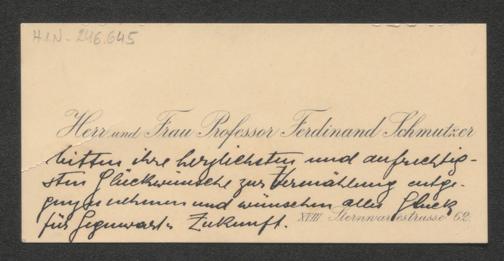 H.I.N.-246.645
Herr und Frau Professor Ferdinand Schmutzer
bitten ihre herzlichsten und aufrichtig-
sten Glückwünsche zur Vermählung entge-
genzunehmen und wünschen alles Glück
für Gegenwart u. Zukunft.
XVIII Sternwartestrasse 62.